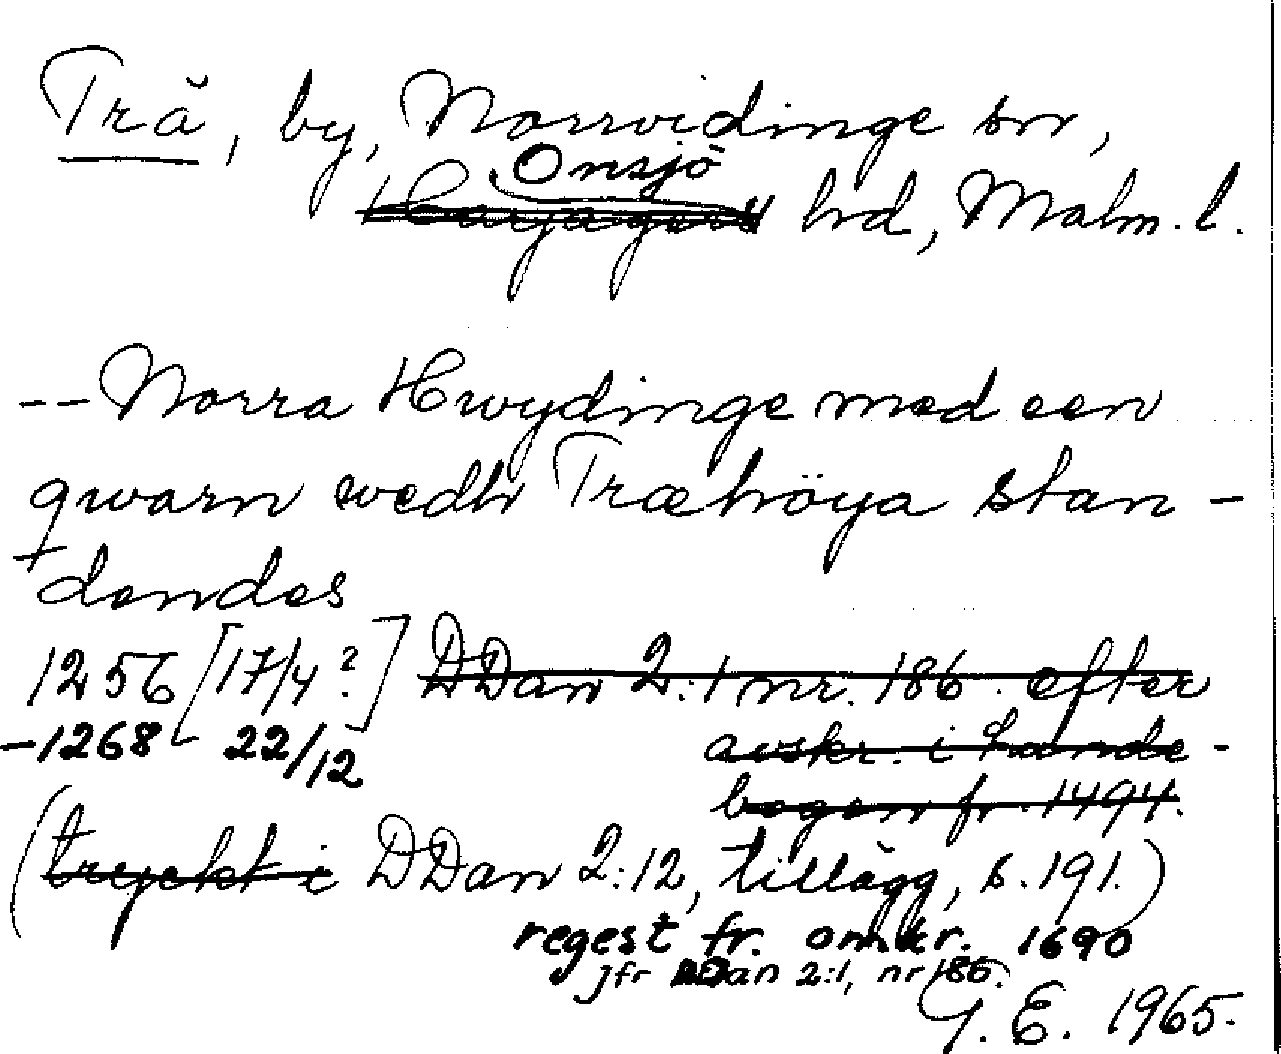 Trä, by, Norrvidinge sn,
Onsjö
Harjagers hd, Malm. l.
-- Norra Hwydinge med een
qwarn wedh Træhöya stan-
dandes
1256 [17/4?] DDan 2:1 nr. 186 efter
-1268 22/12 avskr. i Lunde-
bogen fr. 1494.
(tryckt i DDan 2:12, tillägg, s. 191.)
regest fr. omkr. 1690
jfr DDan 2:1, nr 186.
G. E. 1965.